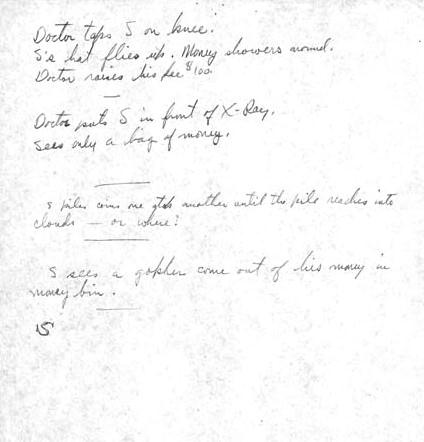 Doctor taps S on knee.
S's hat flies up. Money showers around.
Doctor raises his fee $100.
Doctor puts S in front of X-Ray.
Sees only a bag of money.
S piles coins one atop another until the pile reaches into
clouds — or where?
S sees a gopher come out of his money in
money bin.
S